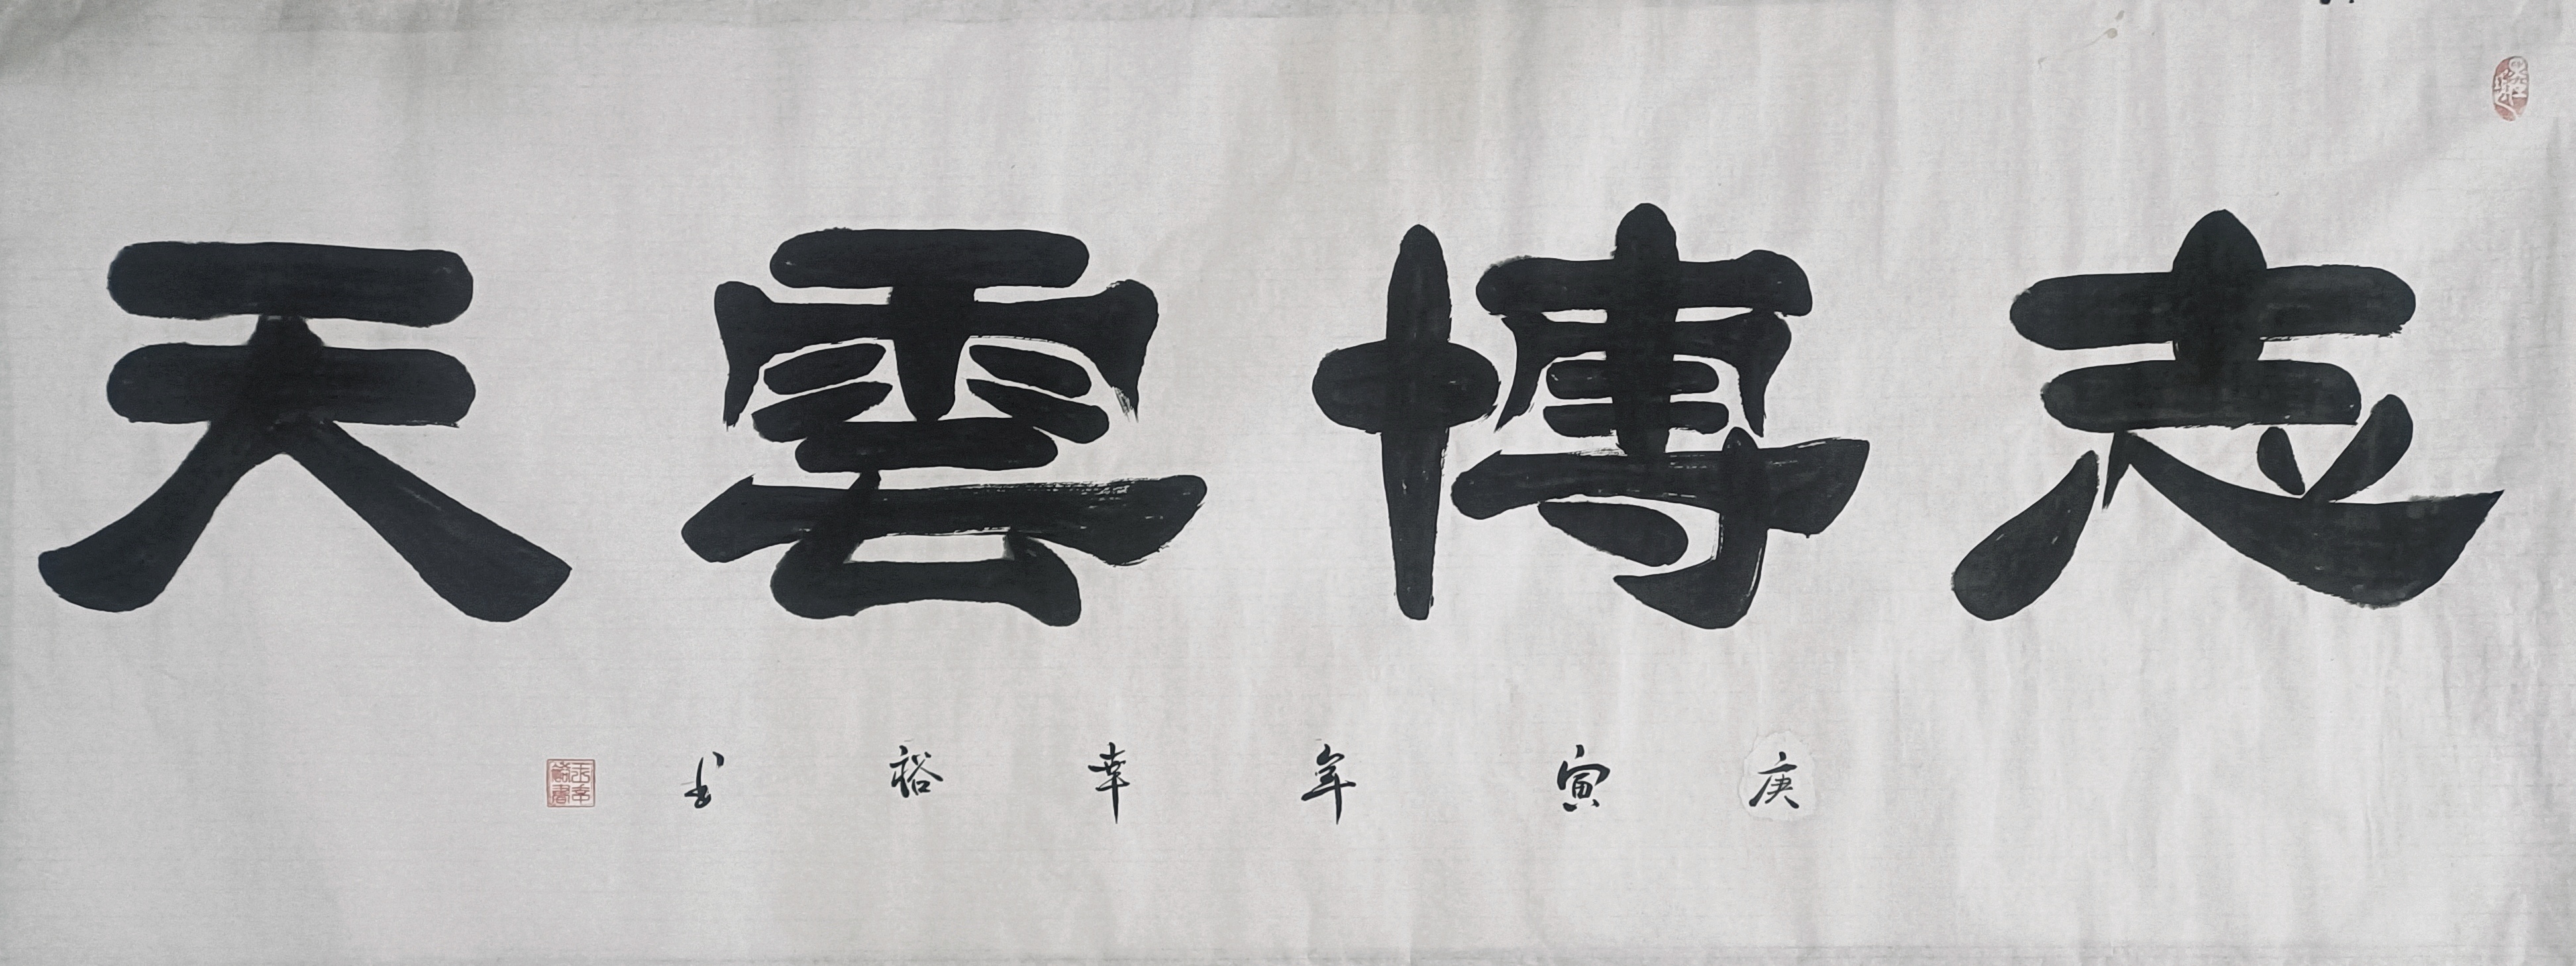 志博雲天
庚寅年幸裕书